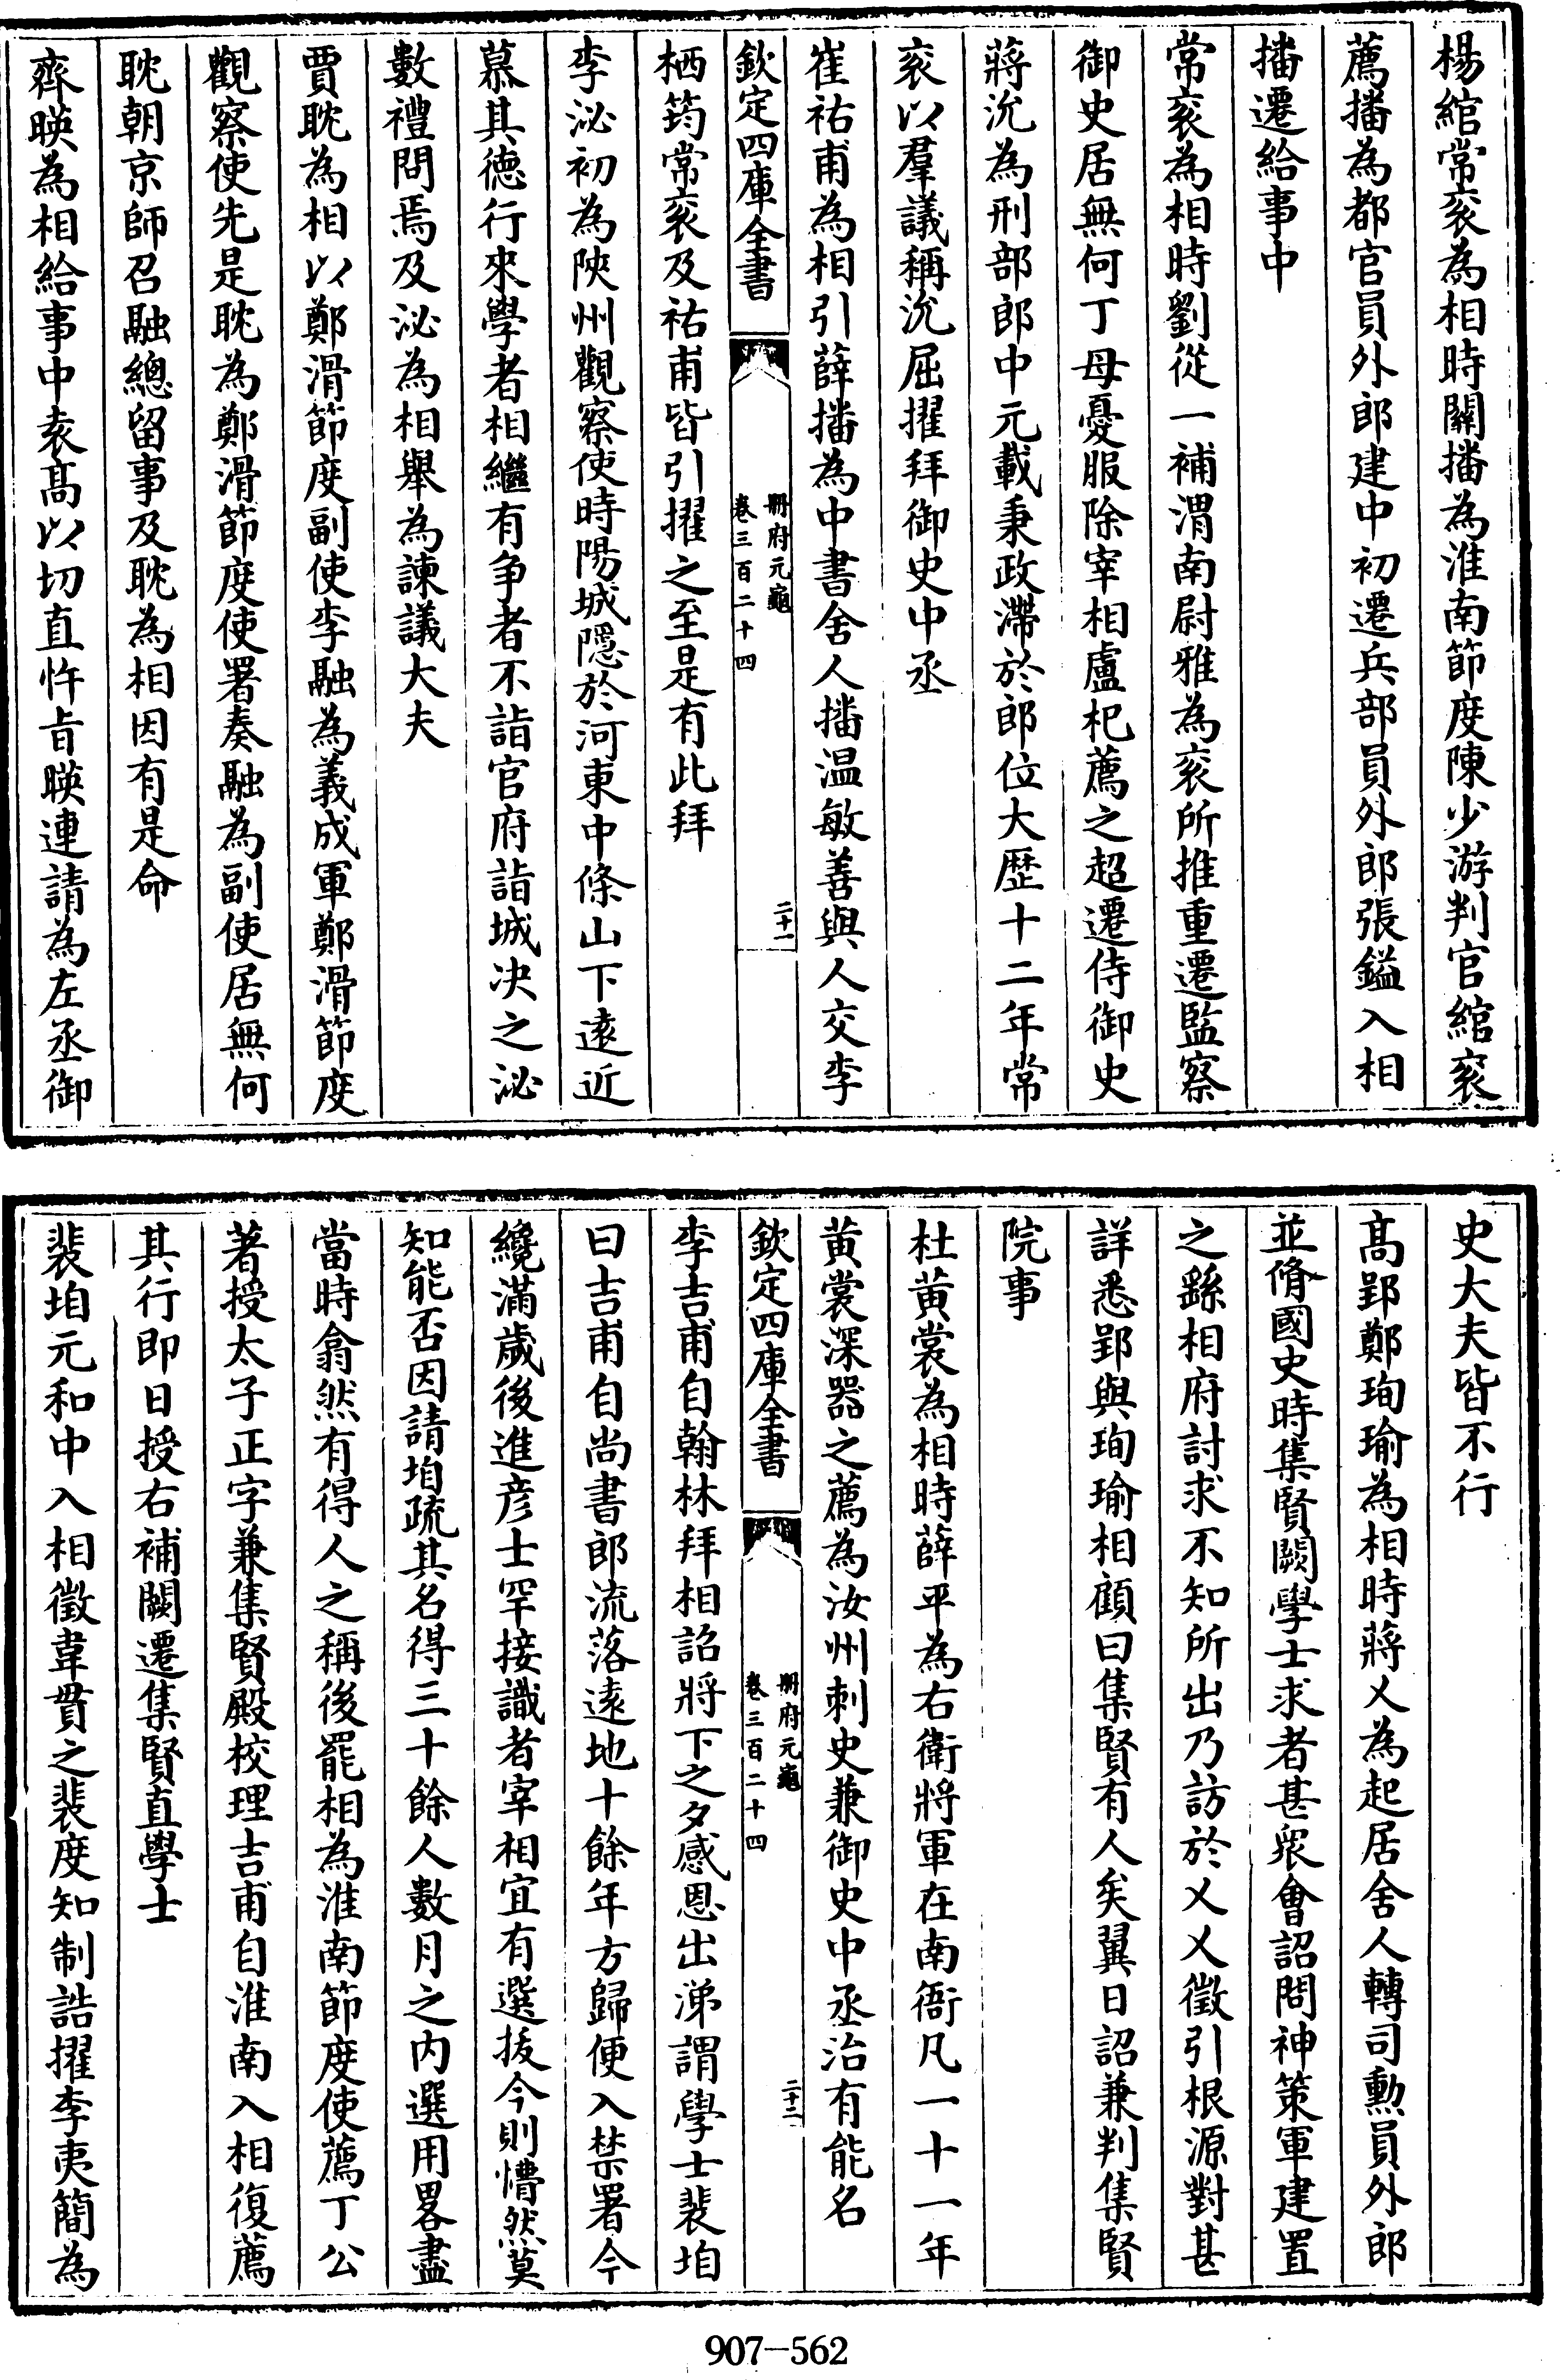 楊綰常衮為相時關播為淮南節度陳少游判官綰衮
薦播為都官員外郎建中初遷兵部員外郎張鎰入相
播遷給事中
常衮為相時劉從一補渭南尉雅為衮所推重遷監察
御史居無何丁母憂服除宰相盧杞薦之超遷侍御史
蔣沇為刑部郎中元載秉政滯於郎位大歴十二年常
衮以羣議稱沇屈擢拜御史中丞
崔祐甫為相引薛播為中書舍人播温敏善與人交李
欽定四庫全書
冊府元龜
卷三百二十四
二十一
栖筠常衮及祐甫皆引擢之至是有此拜
李泌初為陜州觀察使時陽城隱於河東中條山下逺近
慕其德行來學者相繼有争者不詣官府詣城决之泌
數禮問焉及泌為相舉為諫議大夫
賈耽為相以鄭滑節度副使李融為義成軍鄭滑節度
觀察使先是耽為鄭滑節度使署奏融為副使居無何
耽朝京師召融總留事及耽為相因有是命
齊暎為相給事中袁髙以切直忤㫖暎連請為左丞御
史大夫皆不行
髙郢鄭珣瑜為相時蔣乂為起居舍人轉司勲員外郎
並脩國史時集賢闕學士求者甚衆會詔問神策軍建置
之繇相府討求不知所出乃訪於乂乂徵引根源對甚
詳悉郢與珣瑜相顧曰集賢有人矣翼日詔兼判集賢
院事
杜黄裳為相時薛平為右衛將軍在南衙凡一十一年
黄裳深器之薦為汝州刺史兼御史中丞治有能名
欽定四庫全書
冊府元龜
卷三百二十四
二十二
李吉甫自翰林拜相詔將下之夕感恩出涕謂學士裴垍
曰吉甫自尚書郎流落逺地十餘年方歸便入禁署今
纔滿歲後進彦士罕接識者宰相宜有選拔今則懵然莫
知能否因請垍疏其名得三十餘人數月之内選用畧盡
當時翕然有得人之稱後罷相為淮南節度使薦丁公
著授太子正字兼集賢殿校理吉甫自淮南入相復薦
其行即日授右補闕遷集賢直學士
裴垍元和中入相徵韋貫之裴度知制誥擢李夷簡為
907-562